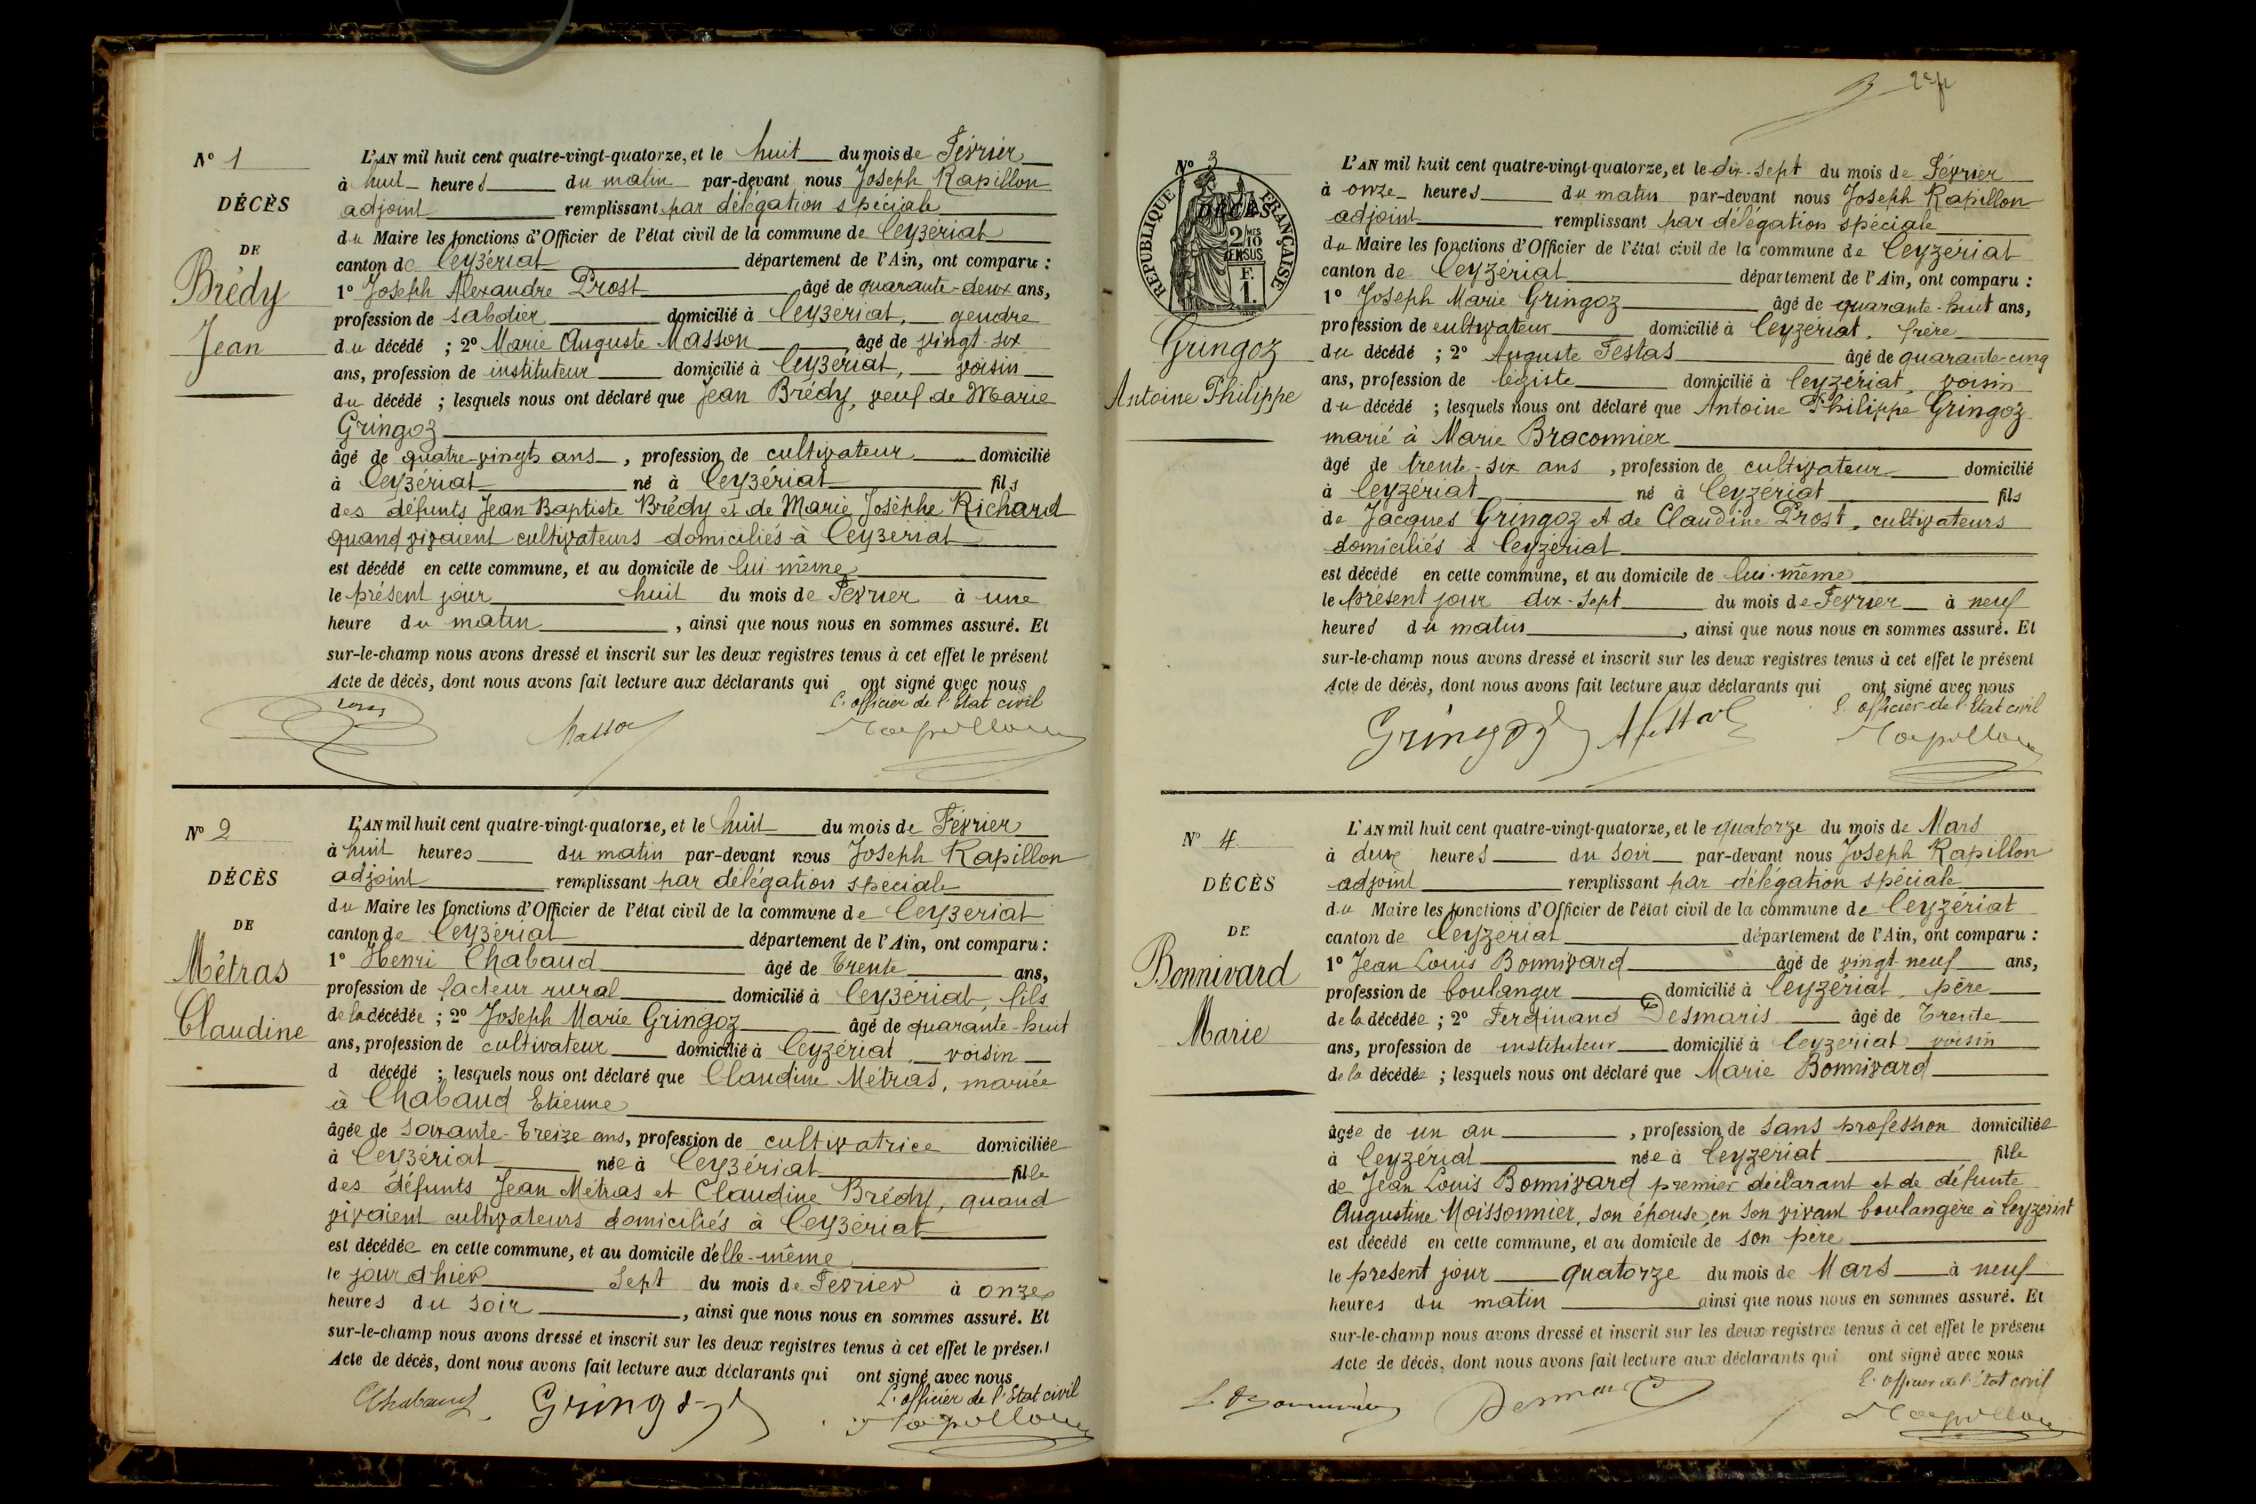 Nº 1
DÉCÈS
DE
Brédy
Jean
L'AN mil huit cent quatre-vingt-quatorze, et le huit du mois de Février
à huit heures du matin par-devant nous Joseph Rapillon
adjoint remplissant par délégation spéciale
du Maire les fonctions d'Officier de l'état civil de la commune de Ceyzériat
canton de Ceyzériat département de l'Ain, ont comparu :
1º Joseph Alexandre Prost âgé de quarante-deux ans,
profession de sabotier domicilié à Ceyzériat, gendre
du décédé ; 2º Marie Auguste Masson âgé de vingt-six
ans, profession de instituteur domicilié à Ceyzériat, voisin
du décédé ; lesquels nous ont déclaré que Jean Brédy, veuf de Marie
Gringoz
âgé de quatre-vingts ans, profession de cultivateur domicilié
à Ceyzériat né à Ceyzériat fils
des défunts Jean Baptiste Brédy et de Marie Josèphe Richard
quand vivaient cultivateurs domiciliés à Ceyzériat
est décédé en cette commune, et au domicile de lui-même
le présent jour huit du mois de Février à une
heure du matin, ainsi que nous nous en sommes assuré. Et
sur-le-champ nous avons dressé et inscrit sur les deux registres tenus à cet effet le présent
Acte de décès, dont nous avons fait lecture aux déclarants qui ont signé avec nous
L'officier de l'Etat civil
Masson Rapillon
Nº 2
DÉCÈS
DE
Métras
Claudine
L'AN mil huit cent quatre-vingt-quatorze, et le huit du mois de Février
à huit heures du matin par-devant nous Joseph Rapillon
adjoint remplissant par délégation spéciale
du Maire les fonctions d'Officier de l'état civil de la commune de Ceyzériat
canton de Ceyzériat département de l'Ain, ont comparu :
1º Henri Chabaud âgé de trente ans,
profession de facteur rural domicilié à Ceyzériat, fils
de la décédée ; 2º Joseph Marie Gringoz âgé de quarante-huit
ans, profession de cultivateur domicilié à Ceyzériat, voisin
d décédé ; lesquels nous ont déclaré que Claudine Métras, mariée
à Chabaud Etienne
âgée de soixante-treize ans, profession de cultivatrice domiciliée
à Ceyzériat née à Ceyzériat fille
des défunts Jean Métras et Claudine Brédy, quand
vivaient cultivateurs domiciliés à Ceyzériat
est décédée en cette commune, et au domicile d'elle-même
le jour d'hier sept du mois de Février à onze
heures du soir, ainsi que nous nous en sommes assuré. Et
sur-le-champ nous avons dressé et inscrit sur les deux registres tenus à cet effet le présent
Acte de décès, dont nous avons fait lecture aux déclarants qui ont signé avec nous
L'officier de l'Etat civil
Chabaud Gringoz Rapillon
Nº 3
DÉCÈS
RÉPUBLIQUE FRANÇAISE
2/10MES
EN SUS
F.
1.
Gringoz
Antoine Philippe
L'AN mil huit cent quatre-vingt-quatorze, et le dix-sept du mois de Février
à onze heures du matin par-devant nous Joseph Rapillon
adjoint remplissant par délégation spéciale
du Maire les fonctions d'Officier de l'état civil de la commune de Ceyzériat
canton de Ceyzériat département de l'Ain, ont comparu :
1º Joseph Marie Gringoz âgé de quarante-huit ans,
profession de cultivateur domicilié à Ceyzériat, frère
du décédé ; 2º Auguste Festas âgé de quarante-cinq
ans, profession de légiste domicilié à Ceyzériat, voisin
du décédé ; lesquels nous ont déclaré que Antoine Philippe Gringoz
marié à Marie Braconnier
âgé de trente-six ans, profession de cultivateur domicilié
à Ceyzériat né à Ceyzériat fils
de Jacques Gringoz et de Claudine Prost, cultivateurs
domiciliés à Ceyzériat
est décédé en cette commune, et au domicile de lui-même
le présent jour dix-sept du mois de Février à neuf
heures du matin, ainsi que nous nous en sommes assuré. Et
sur-le-champ nous avons dressé et inscrit sur les deux registres tenus à cet effet le présent
Acte de décès, dont nous avons fait lecture aux déclarants qui ont signé avec nous
L'officier de l'Etat civil
Gringoz Rapillon
Nº 4
DÉCÈS
DE
Bonnivard
Marie
L'AN mil huit cent quatre-vingt-quatorze, et le quatorze du mois de Mars
à deux heures du soir par-devant nous Joseph Rapillon
adjoint remplissant par délégation spéciale
du Maire les fonctions d'Officier de l'état civil de la commune de Ceyzériat
canton de Ceyzériat département de l'Ain, ont comparu :
1º Jean Louis Bonnivard âgé de vingt-neuf ans,
profession de boulanger domicilié à Ceyzériat, père
de la décédée ; 2º Ferdinand Desmaris âgé de trente
ans, profession de instituteur domicilié à Ceyzériat voisin
de la décédée ; lesquels nous ont déclaré que Marie Bonnivard
âgée de un an, profession de sans profession domiciliée
à Ceyzériat née à Ceyzériat fille
de Jean Louis Bonnivard premier déclarant et de défunte
Augustine Moissonnier, son épouse, en son vivant boulangère à Ceyzériat
est décédé en cette commune, et au domicile de son père
le présent jour quatorze du mois de Mars à neuf
heures du matin ainsi que nous nous en sommes assuré. Et
sur-le-champ nous avons dressé et inscrit sur les deux registres tenus à cet effet le présent
Acte de décès, dont nous avons fait lecture aux déclarants qui ont signé avec nous
L'officier de l'Etat civil
Desmaris Rapillon